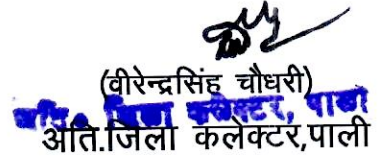 (वीरेन्द्रसिंह चौधरी)
अति. जिला कलेक्टर, पाली
अति.जिला कलेक्टर,पाली